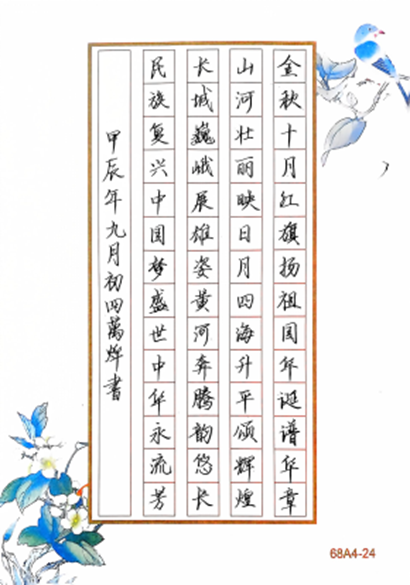 金秋十月红旗扬祖国华诞谱华章
山河壮丽映日月四海升平颂辉煌
长城巍峨展雄姿黄河奔腾韵悠长
民族复兴中国梦盛世中华永流芳
甲辰年九月初四萬烨書
68A4-24